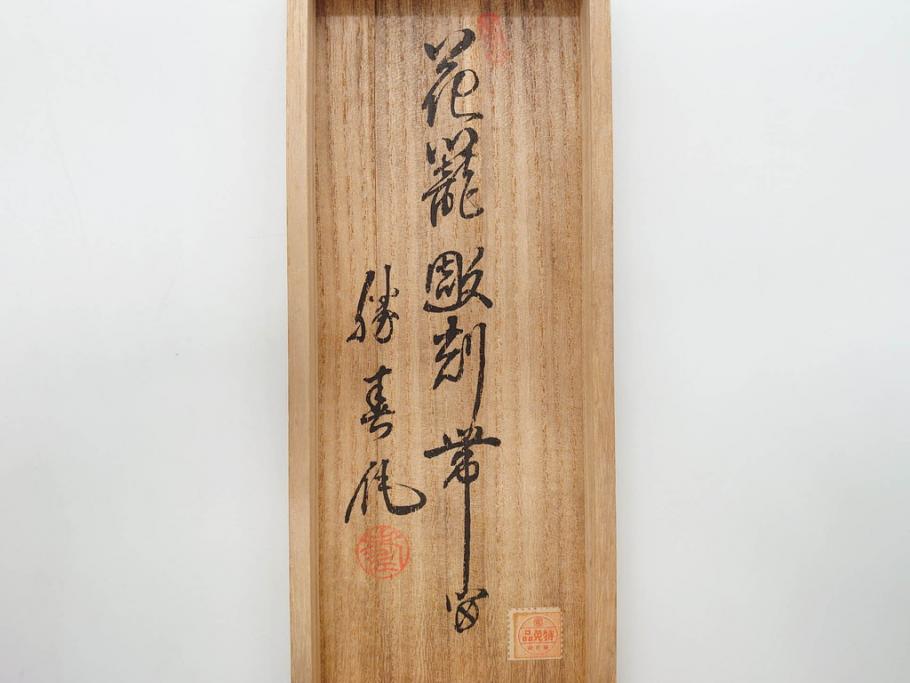 花籠彫刻帯留
勝春作
特免品